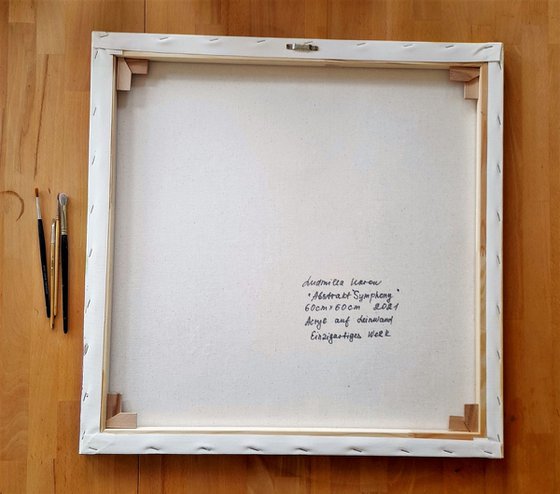 Ludmilla Karow
"Abstrakt Symphony"
60cm x 60cm 2021
Acryl auf Leinwand
Einzigartiges Werk